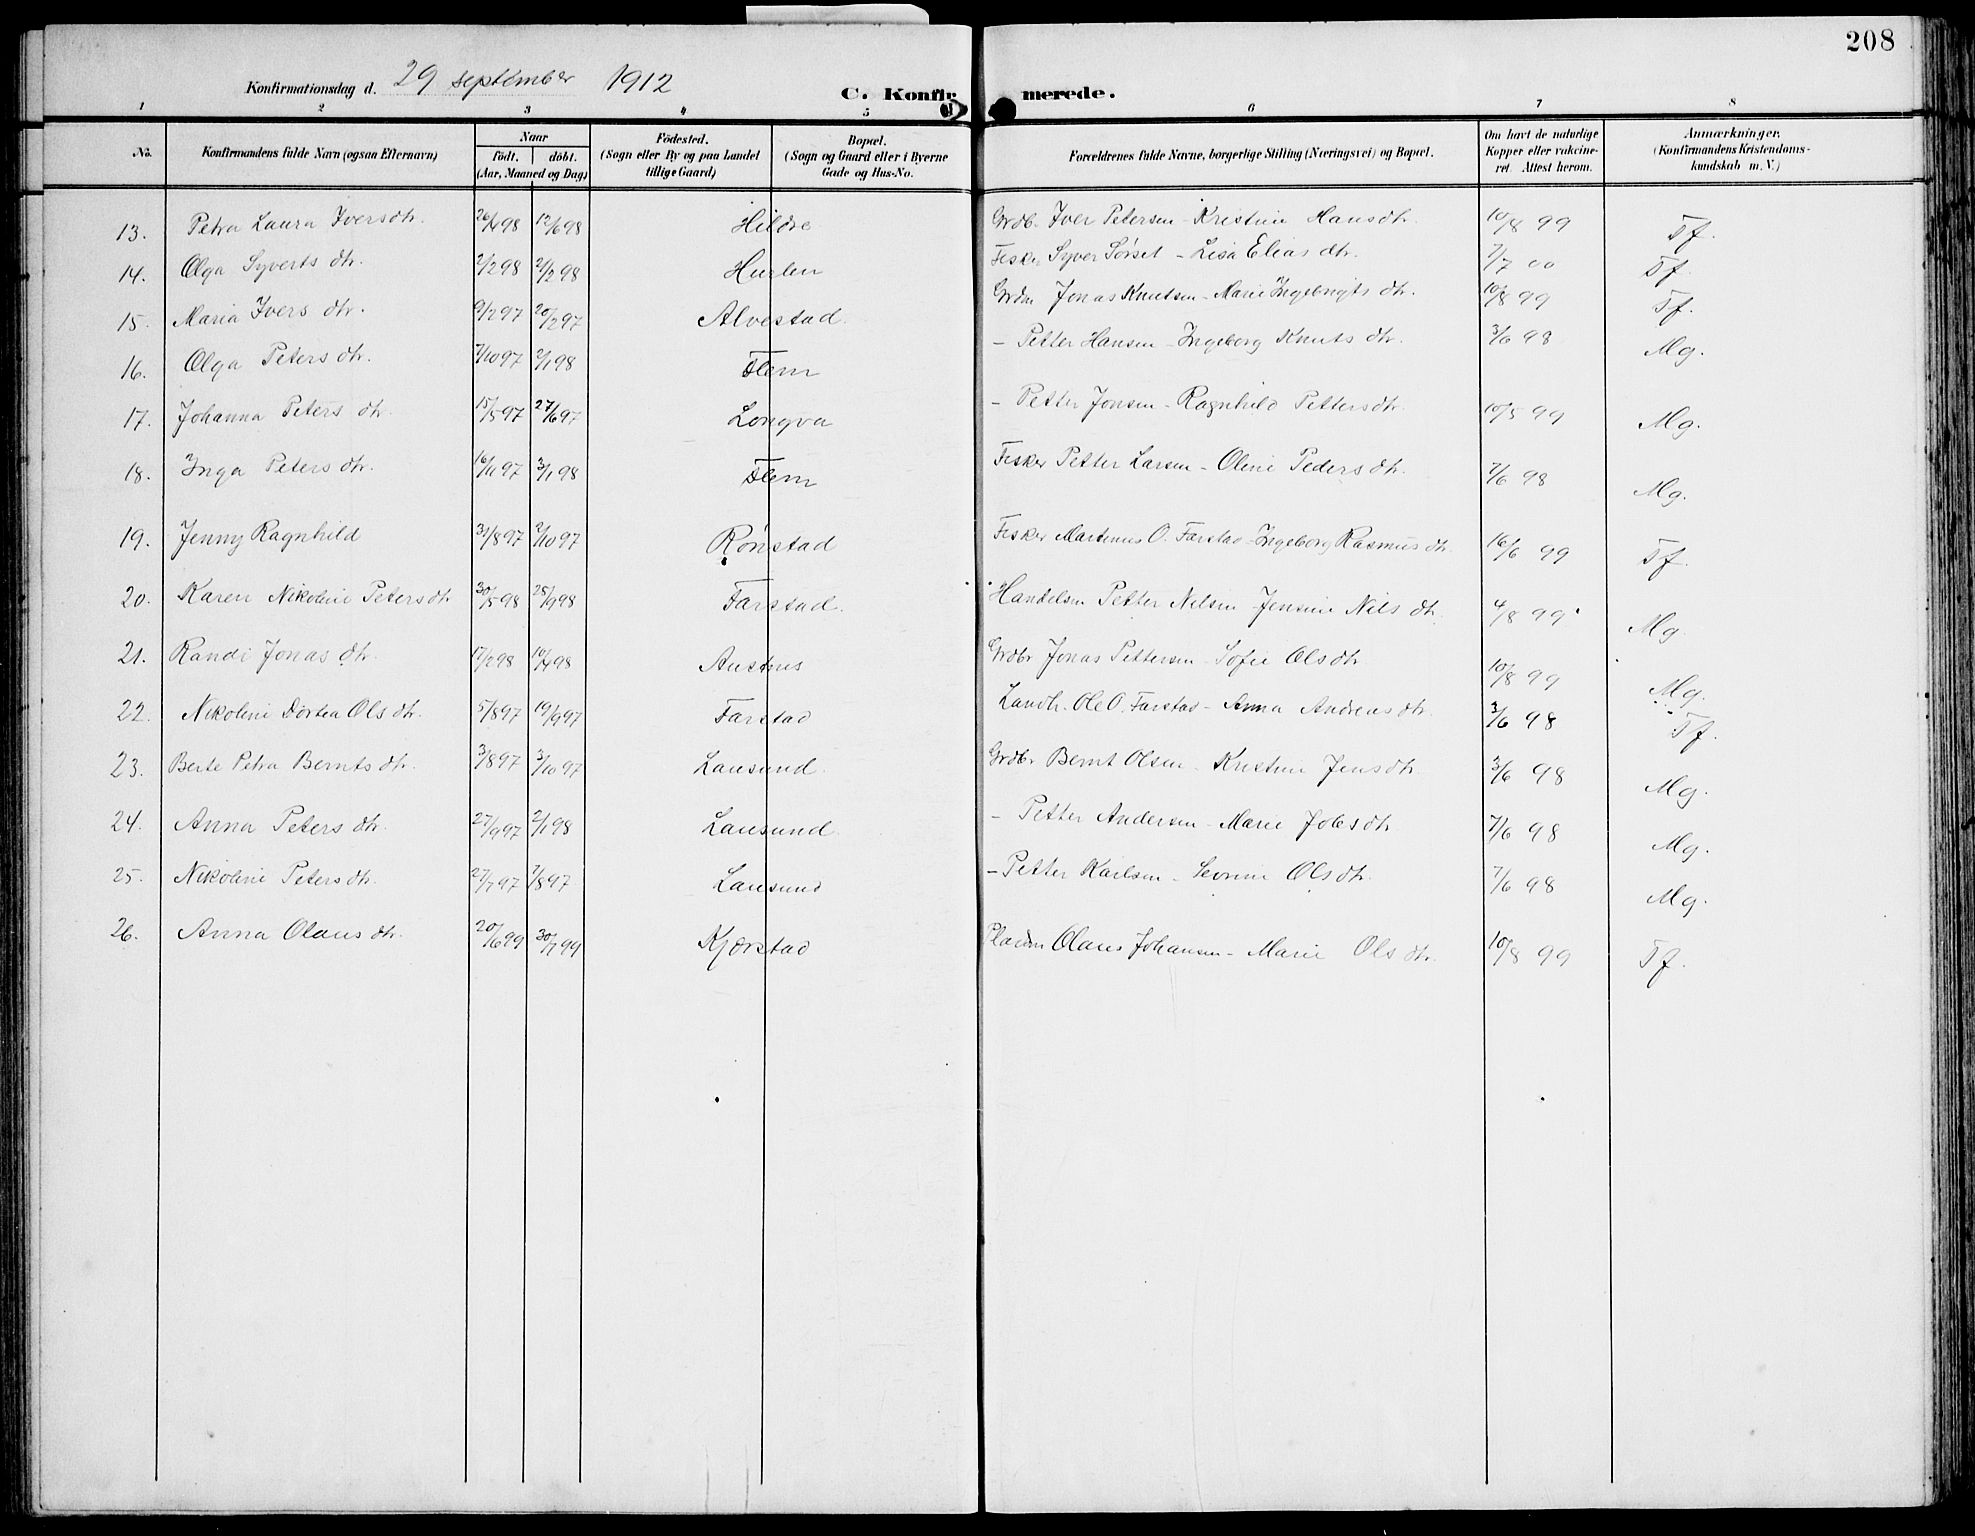 208
Konfirmationsdag d. 29 september 1912
C. Konfirmerede.
1 2 3 4 5 6 7 8
No. Konfirmandens fulde Navn (ogsaa Efternavn) Naar födt. döbt. (Aar, Maaned og Dag) Födested. (Sogn eller By og paa Landet tillige Gaard) Bopæl. (Sogn og Gaard eller i Byerne Gade og Hus-No. Forældrenes fulde Navne, borgerlige Stilling (Næringsvei) og Bopæl. Om havt de naturlige Kopper eller vakcineret. Attest herom. Anmærkninger. (Konfirmandens Kristendomskundskab m. V.)
13. Petra Laura Iversdtr. 26/4 98 12/6 98 Hildre Grdb. Iver Petersen - Kristine Hansdtr. 10/8 99 Tf.
14. Olga Syverts dtr. 2/2 98 2/2 98 Hurlen Fisker Syver Sørset - Lisa Elias dtr. 7/7 00 Tf.
15. Maria Ivers dtr. 9/2 97 20/2 97 Alvestad. Jonas Knutsen - Marie Ingebrigts dtr. 10/8 99 Tf.
16. Olga Peters dtr. 7/10 97 2/1 98 Flem - Petter Hansen - Ingeborg Knuts dtr. 3/6 98 Mg.
17. Johanna Peters dtr. 15/5 97 27/6 97 Longva - Petter Jonsen - Ragnhild Pettersdtr. 10/5 99 Mg.
18. Inga Peters dtr. 16/11 97 3/1 98 Flem Fisker Petter Larsen - Oline Peders dtr. 7/6 98 Mg.
19. Jenny Ragnhild 31/8 97 2/10 97 Rønstad Fisker Martinus O. Farstad - Ingeborg Rasmus dtr. 16/6 99 Tf.
20. Karen Nikoline Petersdtr 30/5 98 25/9 98 Farstad. Handelsm Petter Nilsen - Jensine Nils dtr. 4/8 99 Mg.
21. Randi Jonas dtr. 17/2 98 10/4 98 Austnes Grdbr Jonas Pettersen - Sofie Olsdtr 10/8 99 Mg.
22. Nikoline Dortea Ols dtr. 5/8 97 19/9 97 Farstad Landh. Ole O. Farstad - Anna Andreas dtr. 3/6 98 Tf.
23. Berte Petra Bernts dtr. 3/8 97 3/10 97 Lausund. Grdbr Bernt Olsen - Kristine Jensdtr. 3/6 98 Mg.
24. Anna Peters dtr. 27/9 97 2/1 98 Lausund - Petter Andersen - Marie dtr 7/6 98 Mg.
25. Nikoline Petersdtr. 27/7 97 7/8 97 Lausund - Petter Karlsen - Sevrine Olsdtr. 7/6 98 Mg.
26. Anna Olaus dtr. 20/6 99 30/7 99 Kjærstad Olaus Johansen - Marie Ols dtr. 10/8 99 Tf.